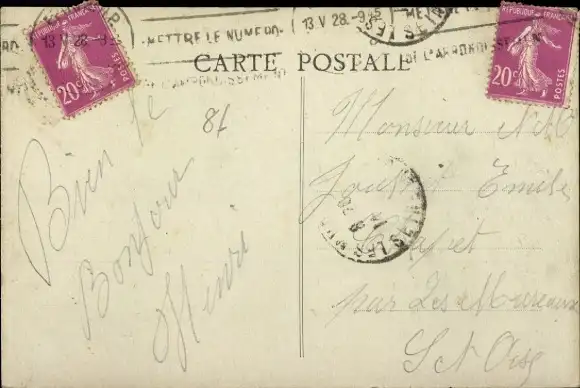 13.V 28.-9
METTRE LE NUMERO
13.V 28.-9
CARTE POSTALE
DE L'ARRONDISSEMENT
RÉPUBLIQUE FRANÇAISE
20c
POSTES
RÉPUBLIQUE FRANÇAISE
20c
POSTES
Bien le
Bonjour
Henri
Monsieur
Emile
par Les Mureaux
St Oise